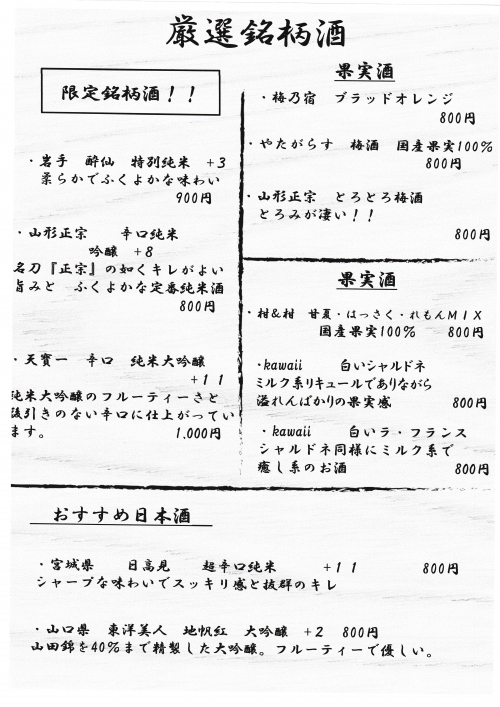 厳選銘柄酒
限定銘柄酒！！
・岩手　酔仙　特別純米　＋3
柔らかでふくよかな味わい
900円
・山形正宗　辛口純米
吟醸　＋8
名刀『正宗』の如くキレがよい
旨みと　ふくよかな定番純米酒
800円
・天寳一　辛口　純米大吟醸
＋11
純米大吟醸のフルーティーさと
引きのない辛口に仕上がってい
ます。　1,000円
果実酒
・梅乃宿　ブラッドオレンジ
800円
・やたがらす　梅酒　国産果実100%
800円
・山形正宗　とろとろ梅酒
とろみが凄い！！
800円
果実酒
・柑&柑　甘夏・はっさく・れもんMIX
国産果実100%　800円
・kawaii　白いシャルドネ
ミルク系リキュールでありながら
溢れんばかりの果実感　800円
・kawaii　白いラ・フランス
シャルドネ同様にミルク系で
癒し系のお酒　800円
おすすめ日本酒
・宮城県　日高見　超辛口純米　＋11　800円
シャープな味わいでスッキリ感と抜群のキレ
・山口県　東洋美人　地帆紅　大吟醸　＋2　800円
山田錦を40%まで精製した大吟醸。フルーティーで優しい。